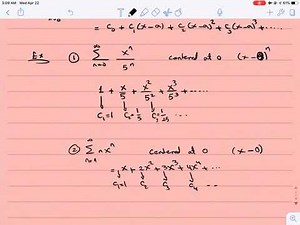 5:09 AM Wed Apr 22
= C₀ + C₁(x-a) + C₂(x-a)² + C₃(x-a)³ + ....
Ex ① ∞ Σ n=0 xⁿ/5ⁿ centered at 0 (x-0)ⁿ
1 + x/5 + x²/5² + x³/5³ + .....
C₁=1 C₁=1/5 C₂=1/25 ....
② ∞ Σ nxⁿ centered at 0 (x-0)
= 1x + 2x² + 3x³ + 4x⁴ + ...
C₁=1 C₂ C₃ C₄ ...